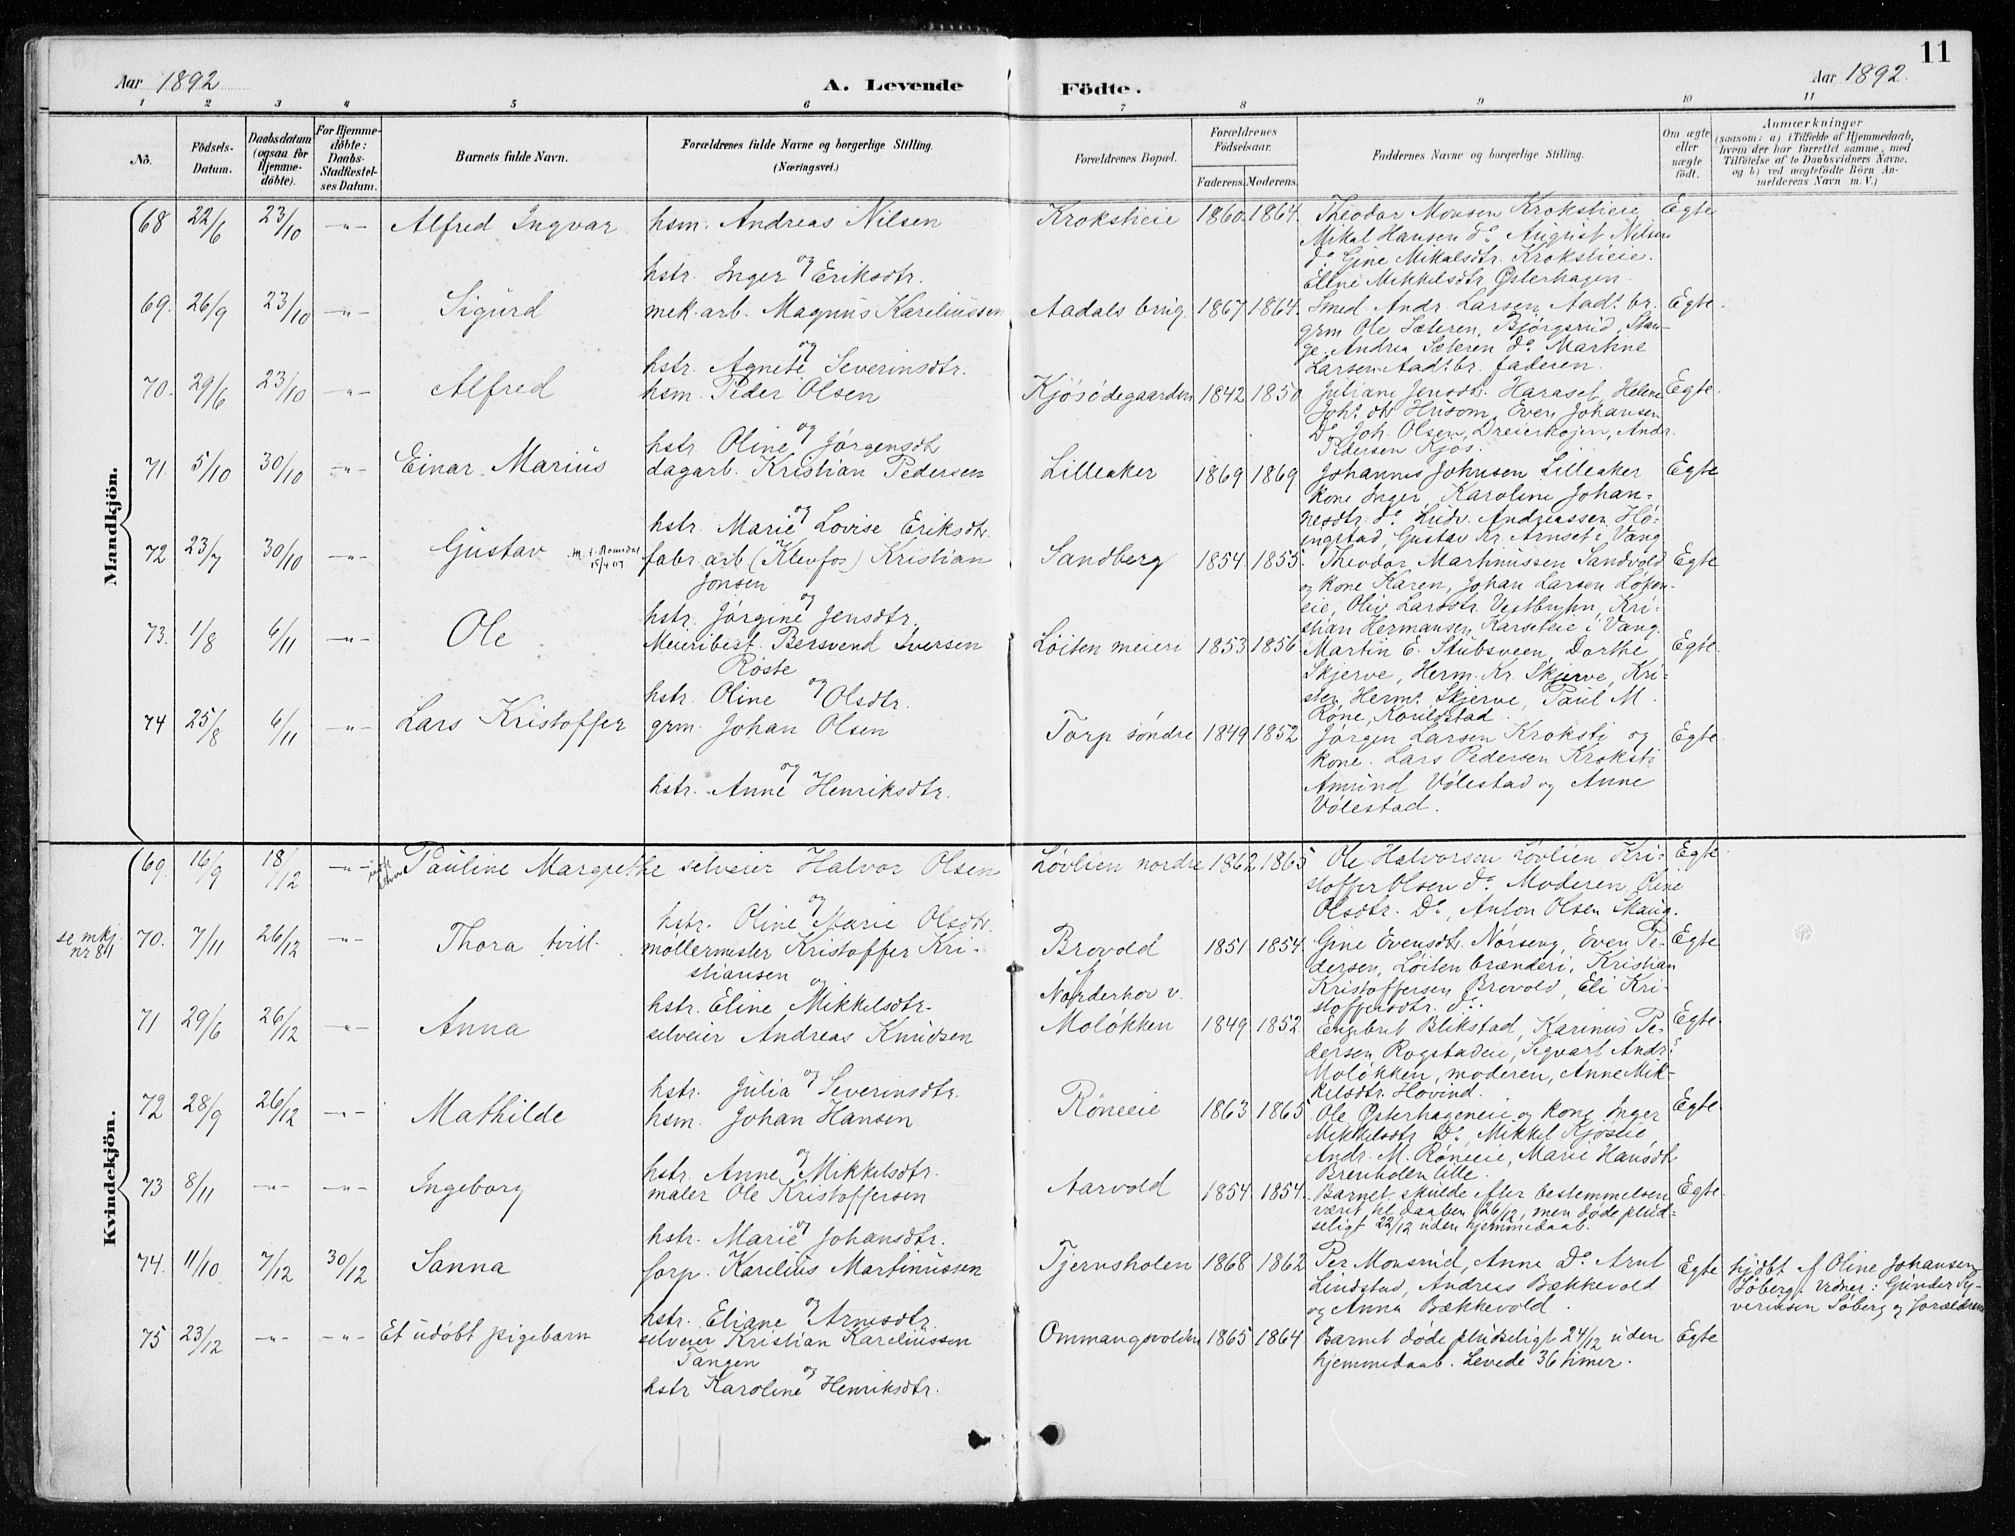 11
Aar 1892
A. Levende
Födte.
Aar 1892.
1 2 3 4 5 6 7 8 9 10 11
No.
Födsels-
Datum.
Daabsdatum
(ogsaa for
Hjemme-
döbte).
For Hjemme-
döbte:
Daabs-
Stadfæstel-
ses Datum.
Barnets fulde Navn.
Forældrenes fulde Navne og borgerlige Stilling.
(Næringsvei.)
Forældrenes Bopæl.
Forældrenes
Födselsaar.
Faderens. Moderens.
Faddernes Navne og borgerlige Stilling.
Om ægte
eller
uægte
födt.
Anmærkninger
(saasom: a) i Tilfælde af Hjemmedaab,
hvem der har forrettet samme, med
Tilföielse af to Daabsvidners Navne.
og b) ved uægtefödte Börn An-
melderens Navn m. V.)
Mandkjön.
68 22/6 23/10 -"- Alfred Ingvar hsm. Andreas Nilsen
og
hstr. Inger Eriksdtr.
Kroksheie 1860 1864. Theodor Monsen Kroksheie Egte
Mikal Hansen do August Nilsen
do Gine Mikalsdtr. Kroksheie.
Elline Mikkelsdtr Østerhagen.
69. 26/9 23/10 -"- Sigurd mek. arb. Magnus Kareliussen
og
hstr. Agnete Severinsdtr.
Aadals brug 1867 1864. Smed Andr. Larsen Aadt. br. Egte.
grm Ole Sæteren, Bjørgsrud, Stan-
ge, Andrea Sæteren do Martine
Larsen Aadt. br. faderen.
70. 29/6 23/10 -"- Alfred hsm. Peder Olsen
og
hstr. Oline Jørgensdt
Kjøsødegaarden 1842 1850 Juliane Jensdtr. Haraset, Helene Egte.
Joh. dtr Husom, Even Johansen
Do, Joh. Olsen, Dreierhojen, Andr.
Pedersen Kjøs.
71. 5/10 30/10 -"- Einar Marius dagarb. Kristian Pedersen
og
hstr. Marie Lovise Eriksdtr.
Lilleaker 1869 1869 Johannes Johnsen Lilleaker Egte
kone Inger, Karoline Johan-
nesdtr. do Ludv. Andreassen Hø-
ingstad, Gustav Kr. Arnset i Vang
72 23/7 30/10 -"- Gustav fabr. arb (Klevfos) Kristian
Jonsen
og
hstr. Jørgine Jensdtr.
Sandberg 1854 1855. Theodor Martinussen Sandvold Egte
og kone Karen, Johan Larsen Løken-
eie, Oliv Larsdtr Vestbyhn, Kri-
stian Hermansen Karseteie i Vang.
73. 1/8 6/11 -"- Ole Meieribest. Bersvend Iversen
Røste
og
hstr. Oline Olsdtr.
Løiten meieri 1853 1856 Martin E. Stubsveen, Dorthe Egte.
Skjerve, Herm. Kr. Skjerve, Kri-
sten Hermt. Skjerve, Paul M.
Røne, Korildstad.
74 25/8 6/11 -"- Lars Kristoffer grm. Johan Olsen
og
hstr. Anne Henriksdtr.
Torp søndre 1849 1852 Jørgen Larsen Kroksti og Egte.
kone. Lars Pedersen Kroksti
Amund Vølestad og Anne
Vølestad.
Kvindekjön.
69. 16/9 18/12 -"- Pauline Margrethe selveier Halvor Olsen
og
hstr. Oline Marie Olsdtr.
Løvlien nordre 1862 1865 Ole Halvorsen Løvlien Kri- Egte
stoffer Olsen do Moderen, Oline
Olsdtr. Do, Anton Olsen Skaug.
se mkj.
nr 84
70. 7/11 26/12 -"- Thora tvill. møllermester Kristoffer Kri-
stiansen og
hstr. Eline Mikkelsdtr.
Brovold
f
Norderhov v.
1851 1854 Gine Evensdtr. Nørseng, Even Pe- Egte
dersen, Løiten brænderi, Kristian
Kristoffersen Brovold, Eli Kri-
stoffersdtr. do.
71 29/6 26/12 -"- Anna selveier Andreas Knudsen
og
hstr. Julia Severinsdtr.
Moløkken 1849 1852. Engebret Blikstad, Karinus Pe- Egte.
dersen Rogstadeie, Sigvart Andr.
Moløkken, moderen, Anne Mik-
kelsdtr. Hovind.
72 28/9 26/12 -"- Mathilde hsm. Johan Hansen
og
hstr. Anne Mikkelsdtr.
Røneeie 1863 1865 Ole Østerhageneie og kone Inger Egte.
Mikkelsdtr Do, Mikkel Kjøseie,
Andr. M. Røneeie, Marie Hansdtr
Brenholen lille.
73 8/11 -"- -"- Ingeborg maler Ole Kristoffersen
og
hstr. Marie Johansdtr.
Aarvold 1854 1854. Barnet skulde efter bestemmelsen Egte.
været til daaben 26/12, men døde plud-
seligt 22/12 uden hjemmedaab.
74. 11/10 7/12 30/12 Sanna forp. Karelius Martinussen
og
hstr. Eliane Arnesdtr.
Tjernsholen 1868 1862 Per Monsrud, Anne Do Arnt Egte
Lindstad, Andreas Bækkevold
og Anna Bækkevold.
hjdbt af Oline Johansen
Søberg. Vidner: Gunder Sy-
verinsen Søberg og forældrene
75 23/12 -"- -"- Et udøbt pigebarn selveier Kristian Kareliussen
Tangen
og
hstr Karoline Henriksdtr.
Ommangsvolden 1865 1864 Barnet døde pludseligt 24/12 uden Egte
hjemmedaab. Levede 36 timer.